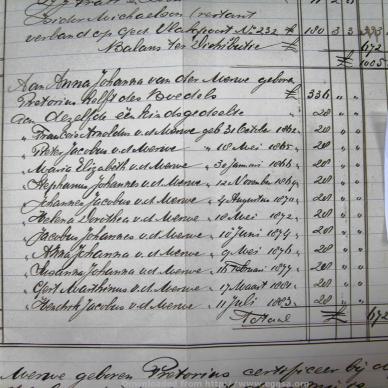 verband op gect. Vlakpoort No 232 £ 150 3 3
Balans ter Distributie £ 672
£ 1005
Aan Anna Johanna van der Merwe geboren
Pretorius helft des Boedels £ 336 " "
aan dezelfde een kindsgedeelte " 28 " "
" Francois Arnoldus v.d. Merwe geb 31 October 1862 " 28 " "
" Pieter Jacobus v.d. Merwe " 18 Mei 1865 " 28 " "
" Maria Elizabeth v.d. Merwe " 30 Januari 1866 " 28 " "
" Stephanus Johannes v.d. Merwe " 12 November 1869 " 28 " "
" Johannes Jacobus v.d. Merwe " 4 Augustus 1870 " 28 " "
" Helena Dorothea v.d. Merwe " 10 Mei 1872 " 28 " "
" Jacobus Johannes v.d. Merwe " 10 Juni 1874 " 28 " "
" Anna Johanna v.d. Merwe " 9 Mei 1876 " 28 " "
" Susanna Johanna v.d. Merwe " 15 Februari 1877 " 28 " "
" Gert Marthinus v.d. Merwe " 17 Maart 1881 " 28 " "
" Hendrik Jacobus v.d. Merwe " 11 Juli 1883 " 28 " "
Totaal £ 672
Merwe geboren Pretorius certificeer bij
Downloaded from www.eggsa.org